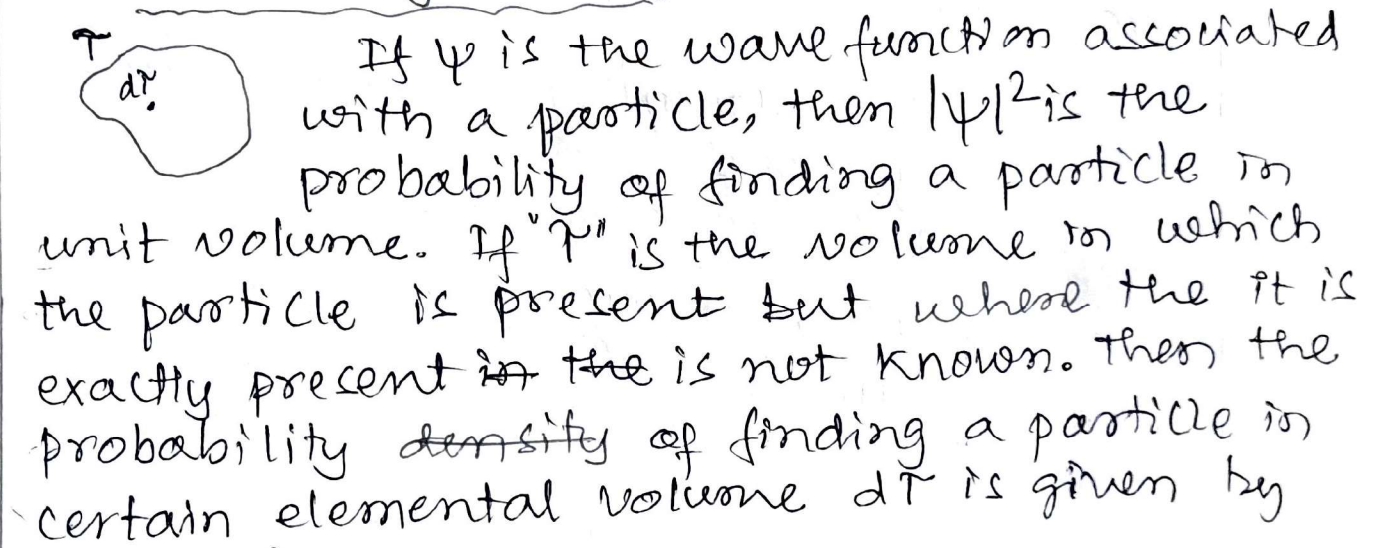 τ
dτ
If ψ is the wave function associated
with a particle, then |ψ|² is the
probability of finding a particle in
unit volume. If "τ" is the volume in which
the particle is present but where the it is
exactly present in the is not known. Then the
probability density of finding a particle in
certain elemental volume dτ is given by